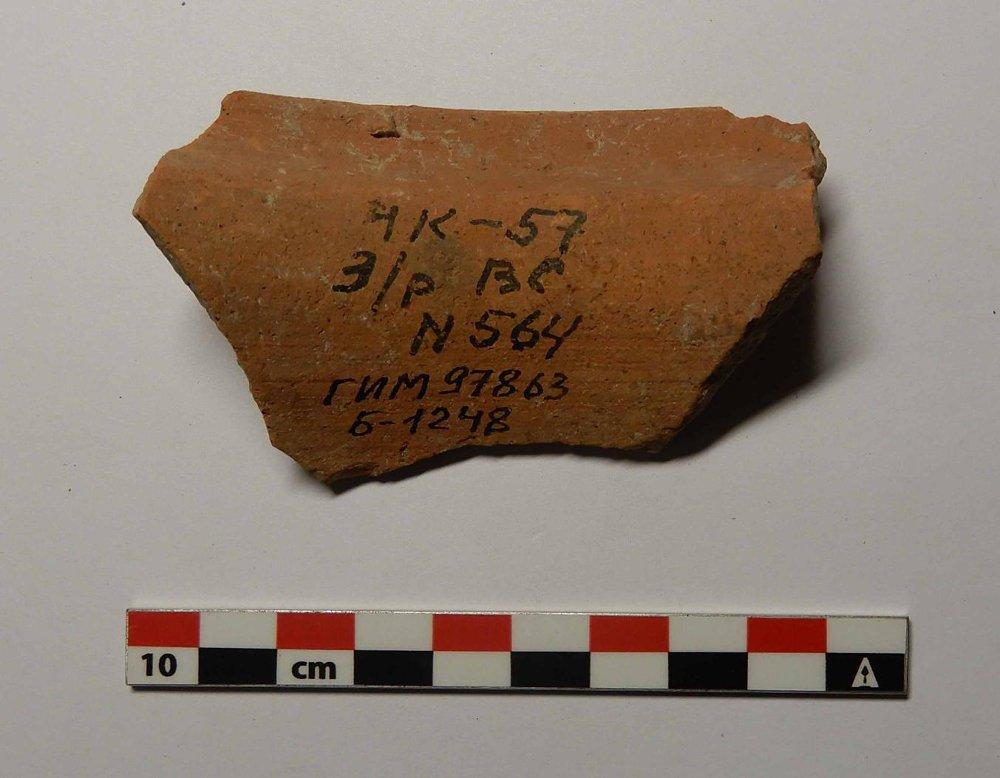 ЧК-57
Э/р ВС
N 564
ГИМ 97863
Б-1248
10 cm